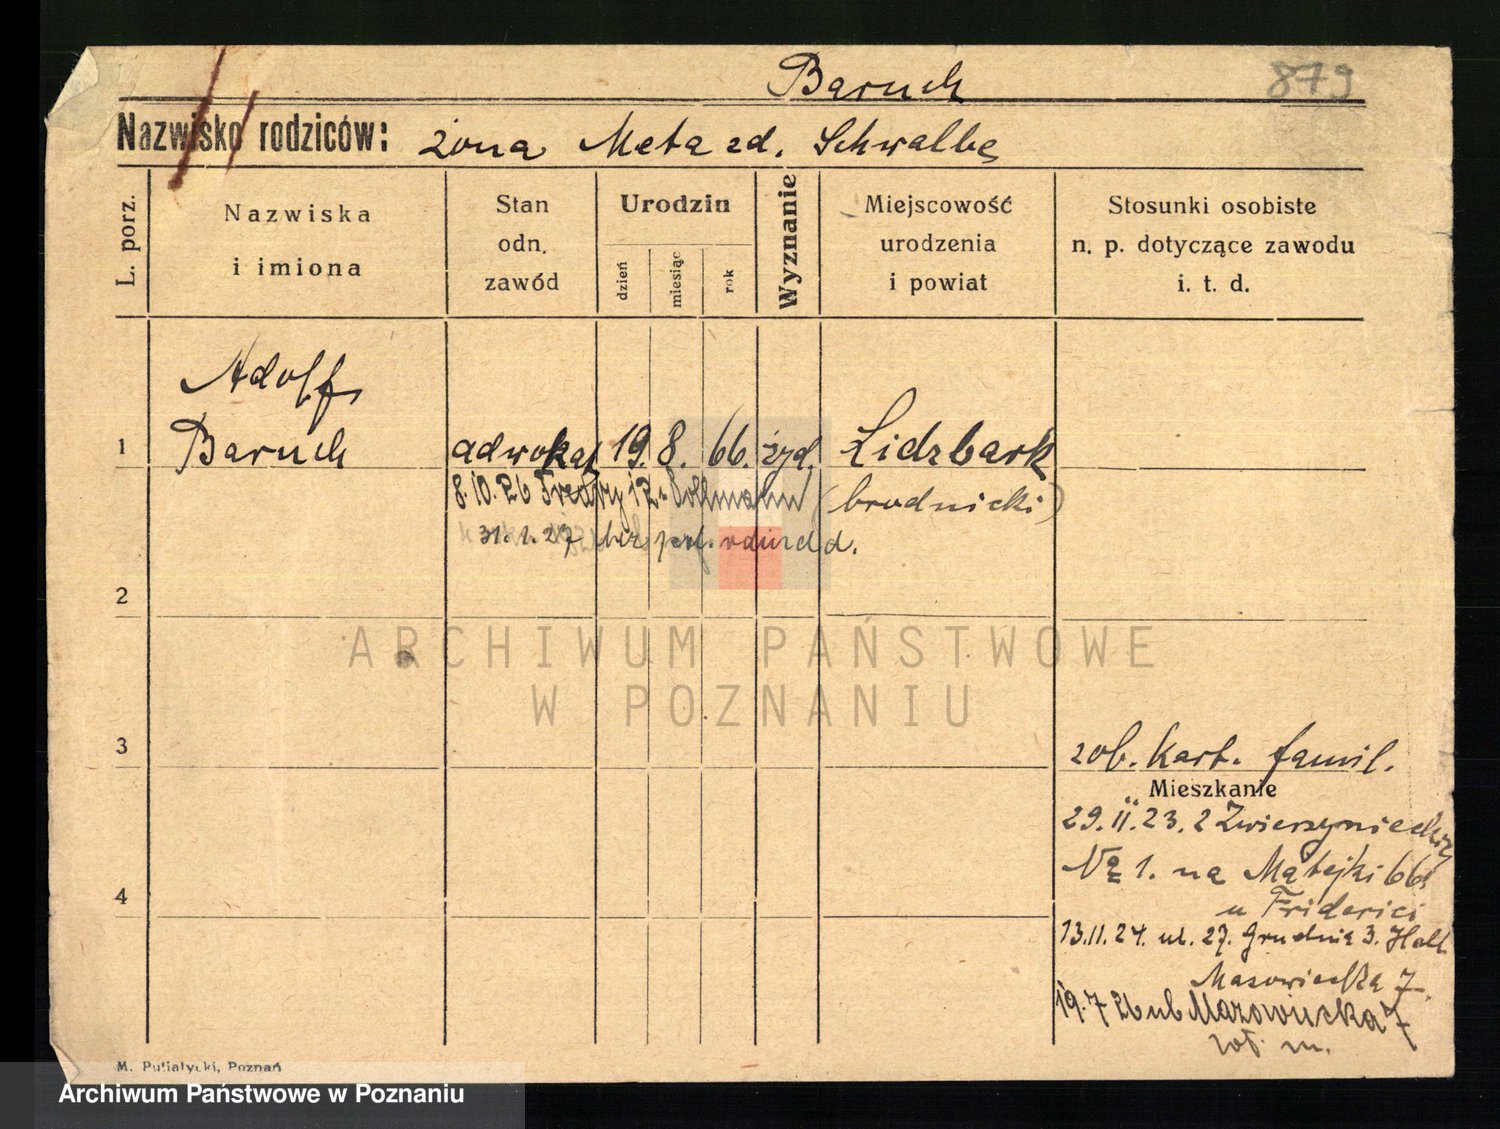 Baruch
879
Nazwisko rodziców: żona Meta zd. Schwalbe
L. porz.
Nazwiska
i imiona
Stan
odn.
zawód
Urodzin
dzień
miesiąc
rok
Wyznanie
Miejscowość
urodzenia
i powiat
Stosunki osobiste
n. p. dotyczące zawodu
i. t. d.
Adolf
1 Baruch adwokat 19. 8. 66. żyd. Lidzbark
(brodnicki)
8.10.26 Fredry 12
31.1.27
2
ARCHIWUM PAŃSTWOWE
W POZNANIU
3
zob. kart. famil.
Mieszkanie
29.11.23. z Zwierzynieckiej
4
№ 1. na Matejki 66
u Friderici
13.11.24. ul. 27. Grudnia 3.
Masowiecka 7.
19.7 26 ul Mazowiecka 7
M. Putiatycki, Poznań
Archiwum Państwowe w Poznaniu